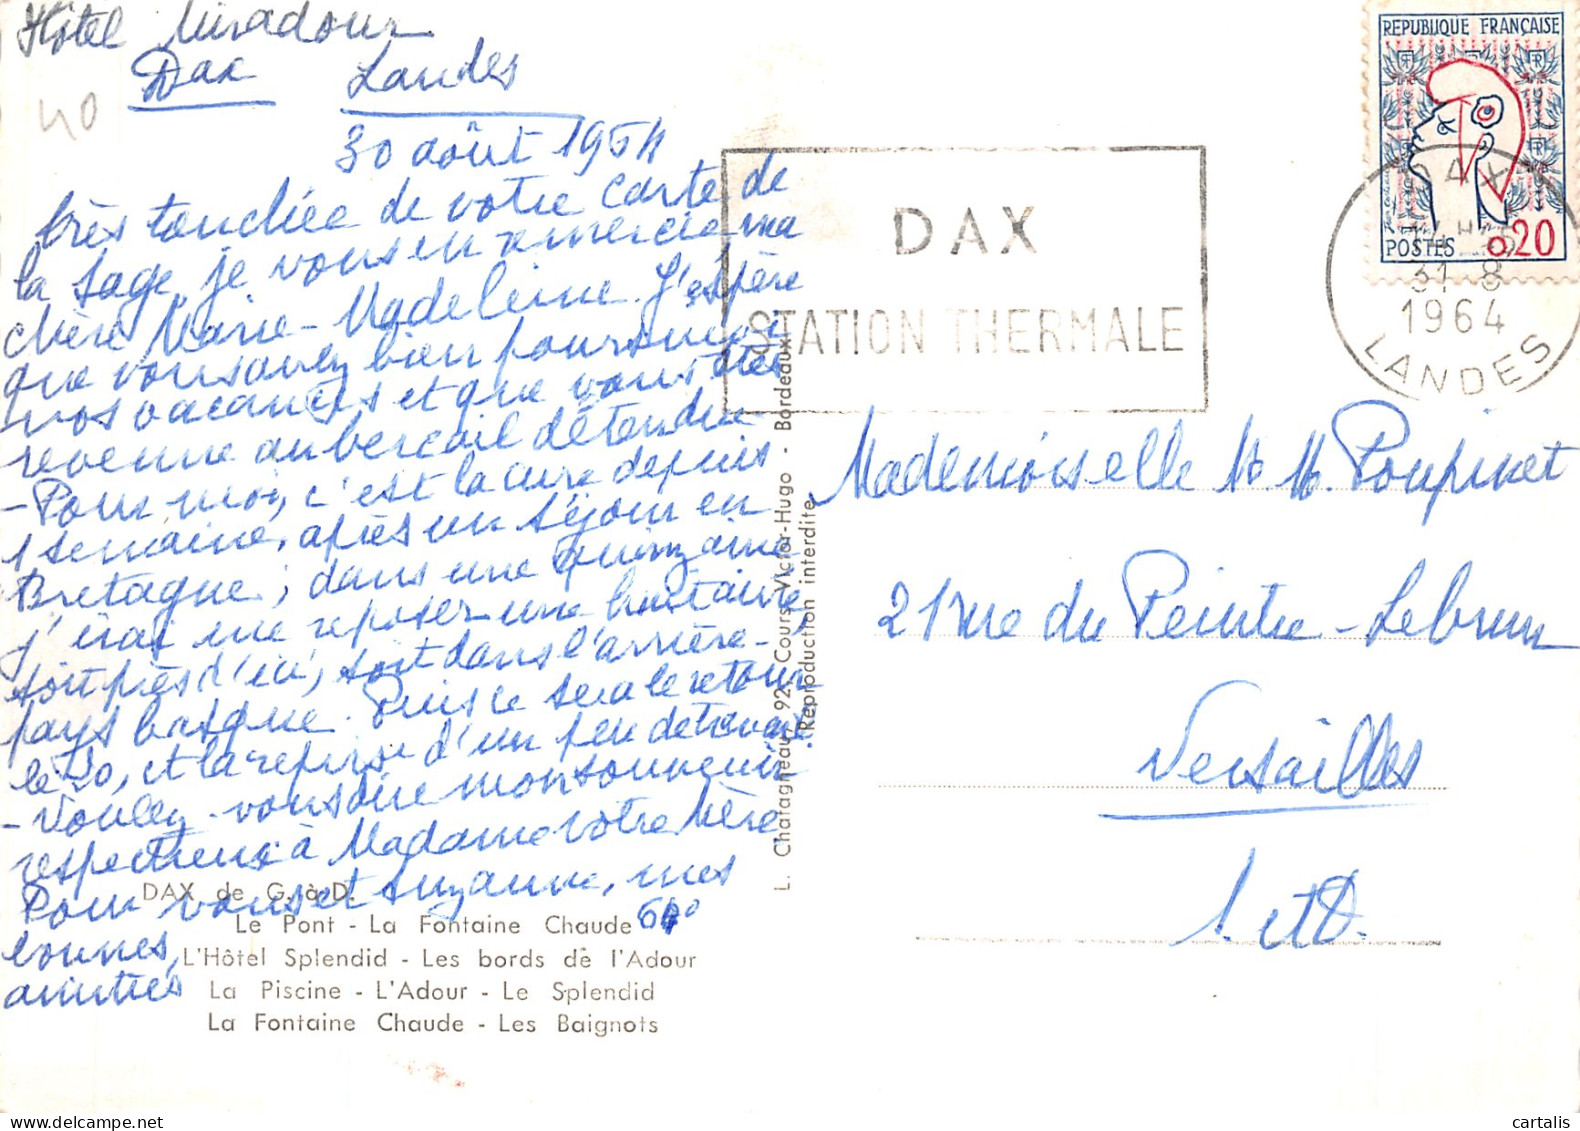 Hôtel Miradour
Dax Landes
40
30 août 1964
très touchée de votre carte de
la Sage, je vous en remercie ma
chère Marie-Madeleine. J'espère
que vous avez bien poursuivi
vos vacances et que vous êtes
revenue au bercail détendue
- Pour moi, c'est la cure depuis
1 semaine, après un séjour en
Bretagne ; dans une quinzaine
j'irai me reposer une huitaine
soit près d'ici, soit dans l'arrière-
pays basque. Puis ce sera le retour
le 20, et la reprise d'un peu de travail
- Voulez-vous dire mon souvenir
respectueux à Madame votre Mère
Pour vous et Suzanne, mes
bonnes
amitiés
DAX de G. à D.
Le Pont - La Fontaine Chaude 64°
L'Hôtel Splendid - Les bords de l'Adour
La Piscine - L'Adour - Le Splendid
La Fontaine Chaude - Les Baignots
L. Chatagneau, 92, Cours Victor-Hugo - Bordeaux
(Reproduction interdite)
DAX
STATION THERMALE
REPUBLIQUE FRANÇAISE
POSTES 0,20
DAX
31-8
1964
LANDES
Mademoiselle M. M. Poupinet
21 rue du Peintre-Lebrun
Versailles
S. et O.
cartalis